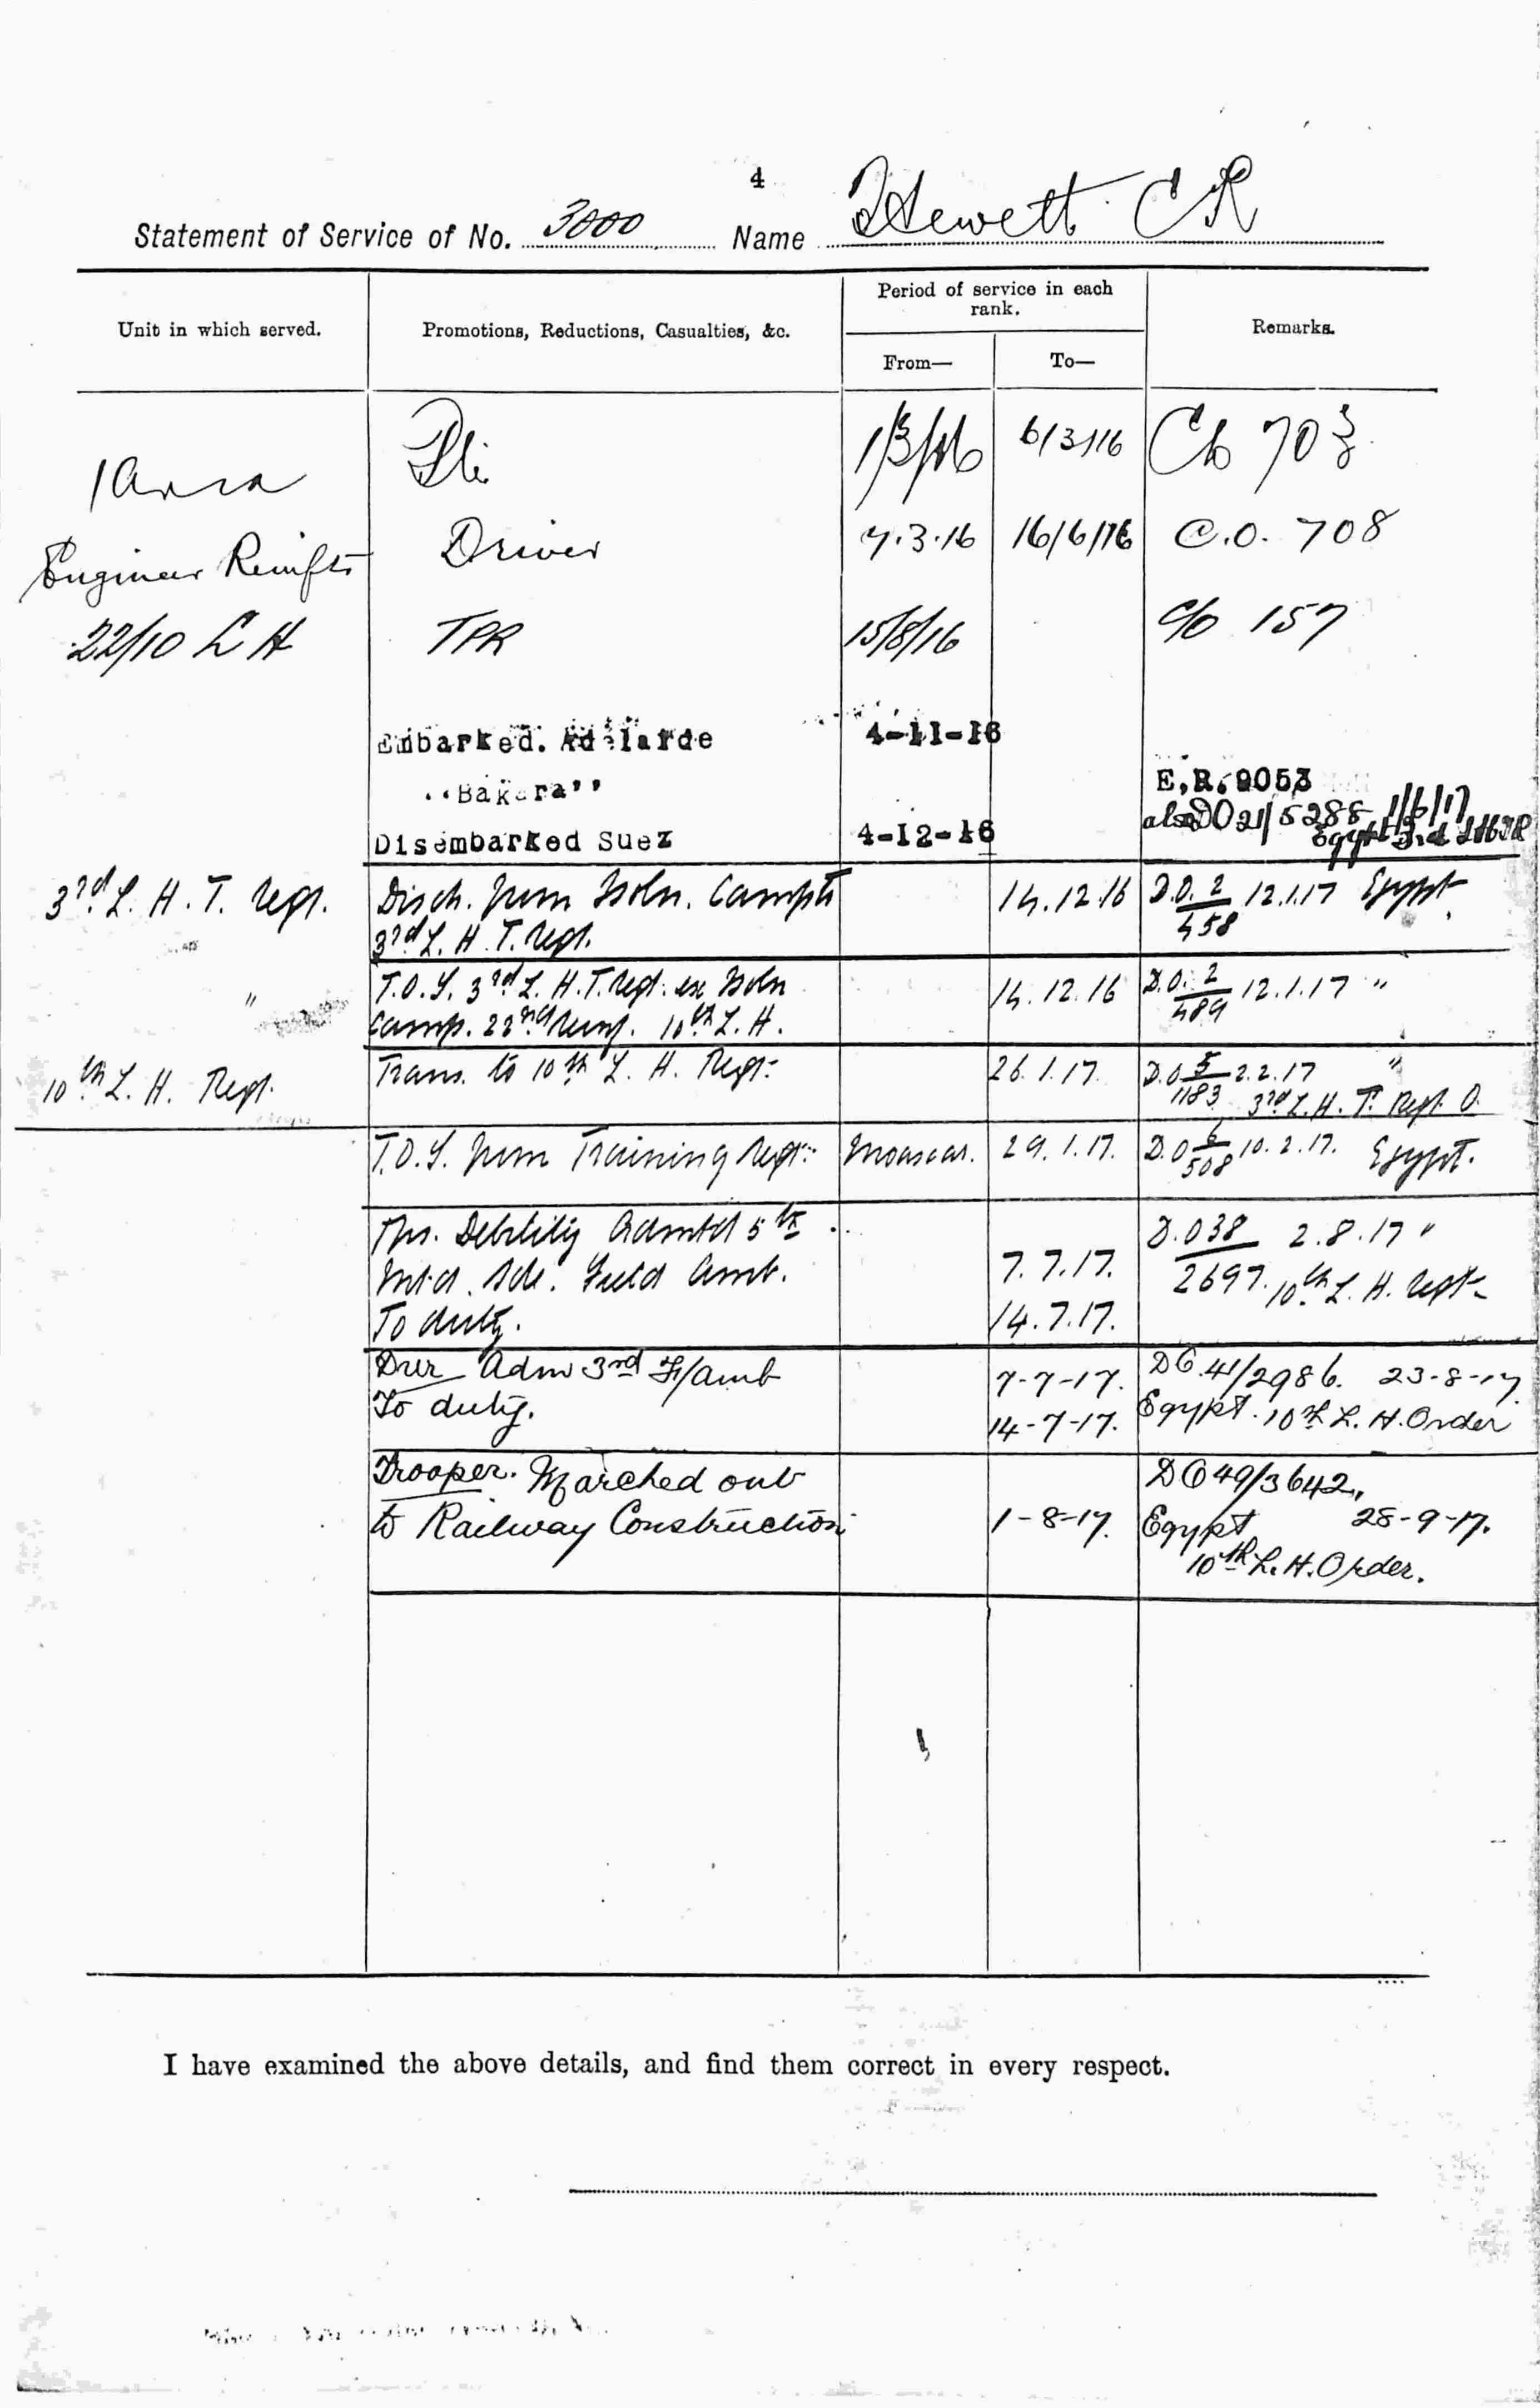 4
Statement of Service of No. 3000 Name Hewett C R
Unit in which served.
Promotions, Reductions, Casualties, &c.
Period of service in each rank.
From—
To—
Remarks.
Pte 1/3/16 6/3/16 Co 708
Engineer Reinfts Driver 7.3.16 16/6/16 C.O. 708
22/10 L H TPR 15/8/16 C/o 157
Embarked. Adelaide 4-11-16
"Bakara" E.R. 9053
also DO 21/5288 1/6/17
Disembarked Suez 4-12-16 Egypt 3rd LHTR
3rd L. H. T. Regt. Disch. from Isoln. Camp to 14.12.16 D.O. 2/458 12.1.17 Egypt
3rd L. H. T. Regt.
" T.O.S. 3rd L. H. T. Regt. ex Isoln 14.12.16 D.O. 2/489 12.1.17 "
Camp. 22nd Reinf. 10th L. H.
10th L. H. Regt. Trans. to 10th L. H. Regt. 26.1.17. D.O 5/1183 2.2.17 "
3rd L. H. T. Regt. O.
T.O.S. from Training Regt. Moascar. 29.1.17. D.O 6/508 10.2.17. Egypt.
Tpr. Debility Admtd 5th D.O 38/2697. 2.8.17 "
Mtd. Bde. Field Amb. 7.7.17. 10th L. H. Regt.
To duty. 14.7.17.
Dvr Adm 3rd F/Amb 7-7-17. DO.41/2986. 23-8-17.
To duty. 14-7-17. Egypt. 10th L. H. Order
Trooper. Marched out DO 49/3642,
to Railway Construction 1-8-17. Egypt 28-9-17.
10th L. H. Order.
I have examined the above details, and find them correct in every respect.